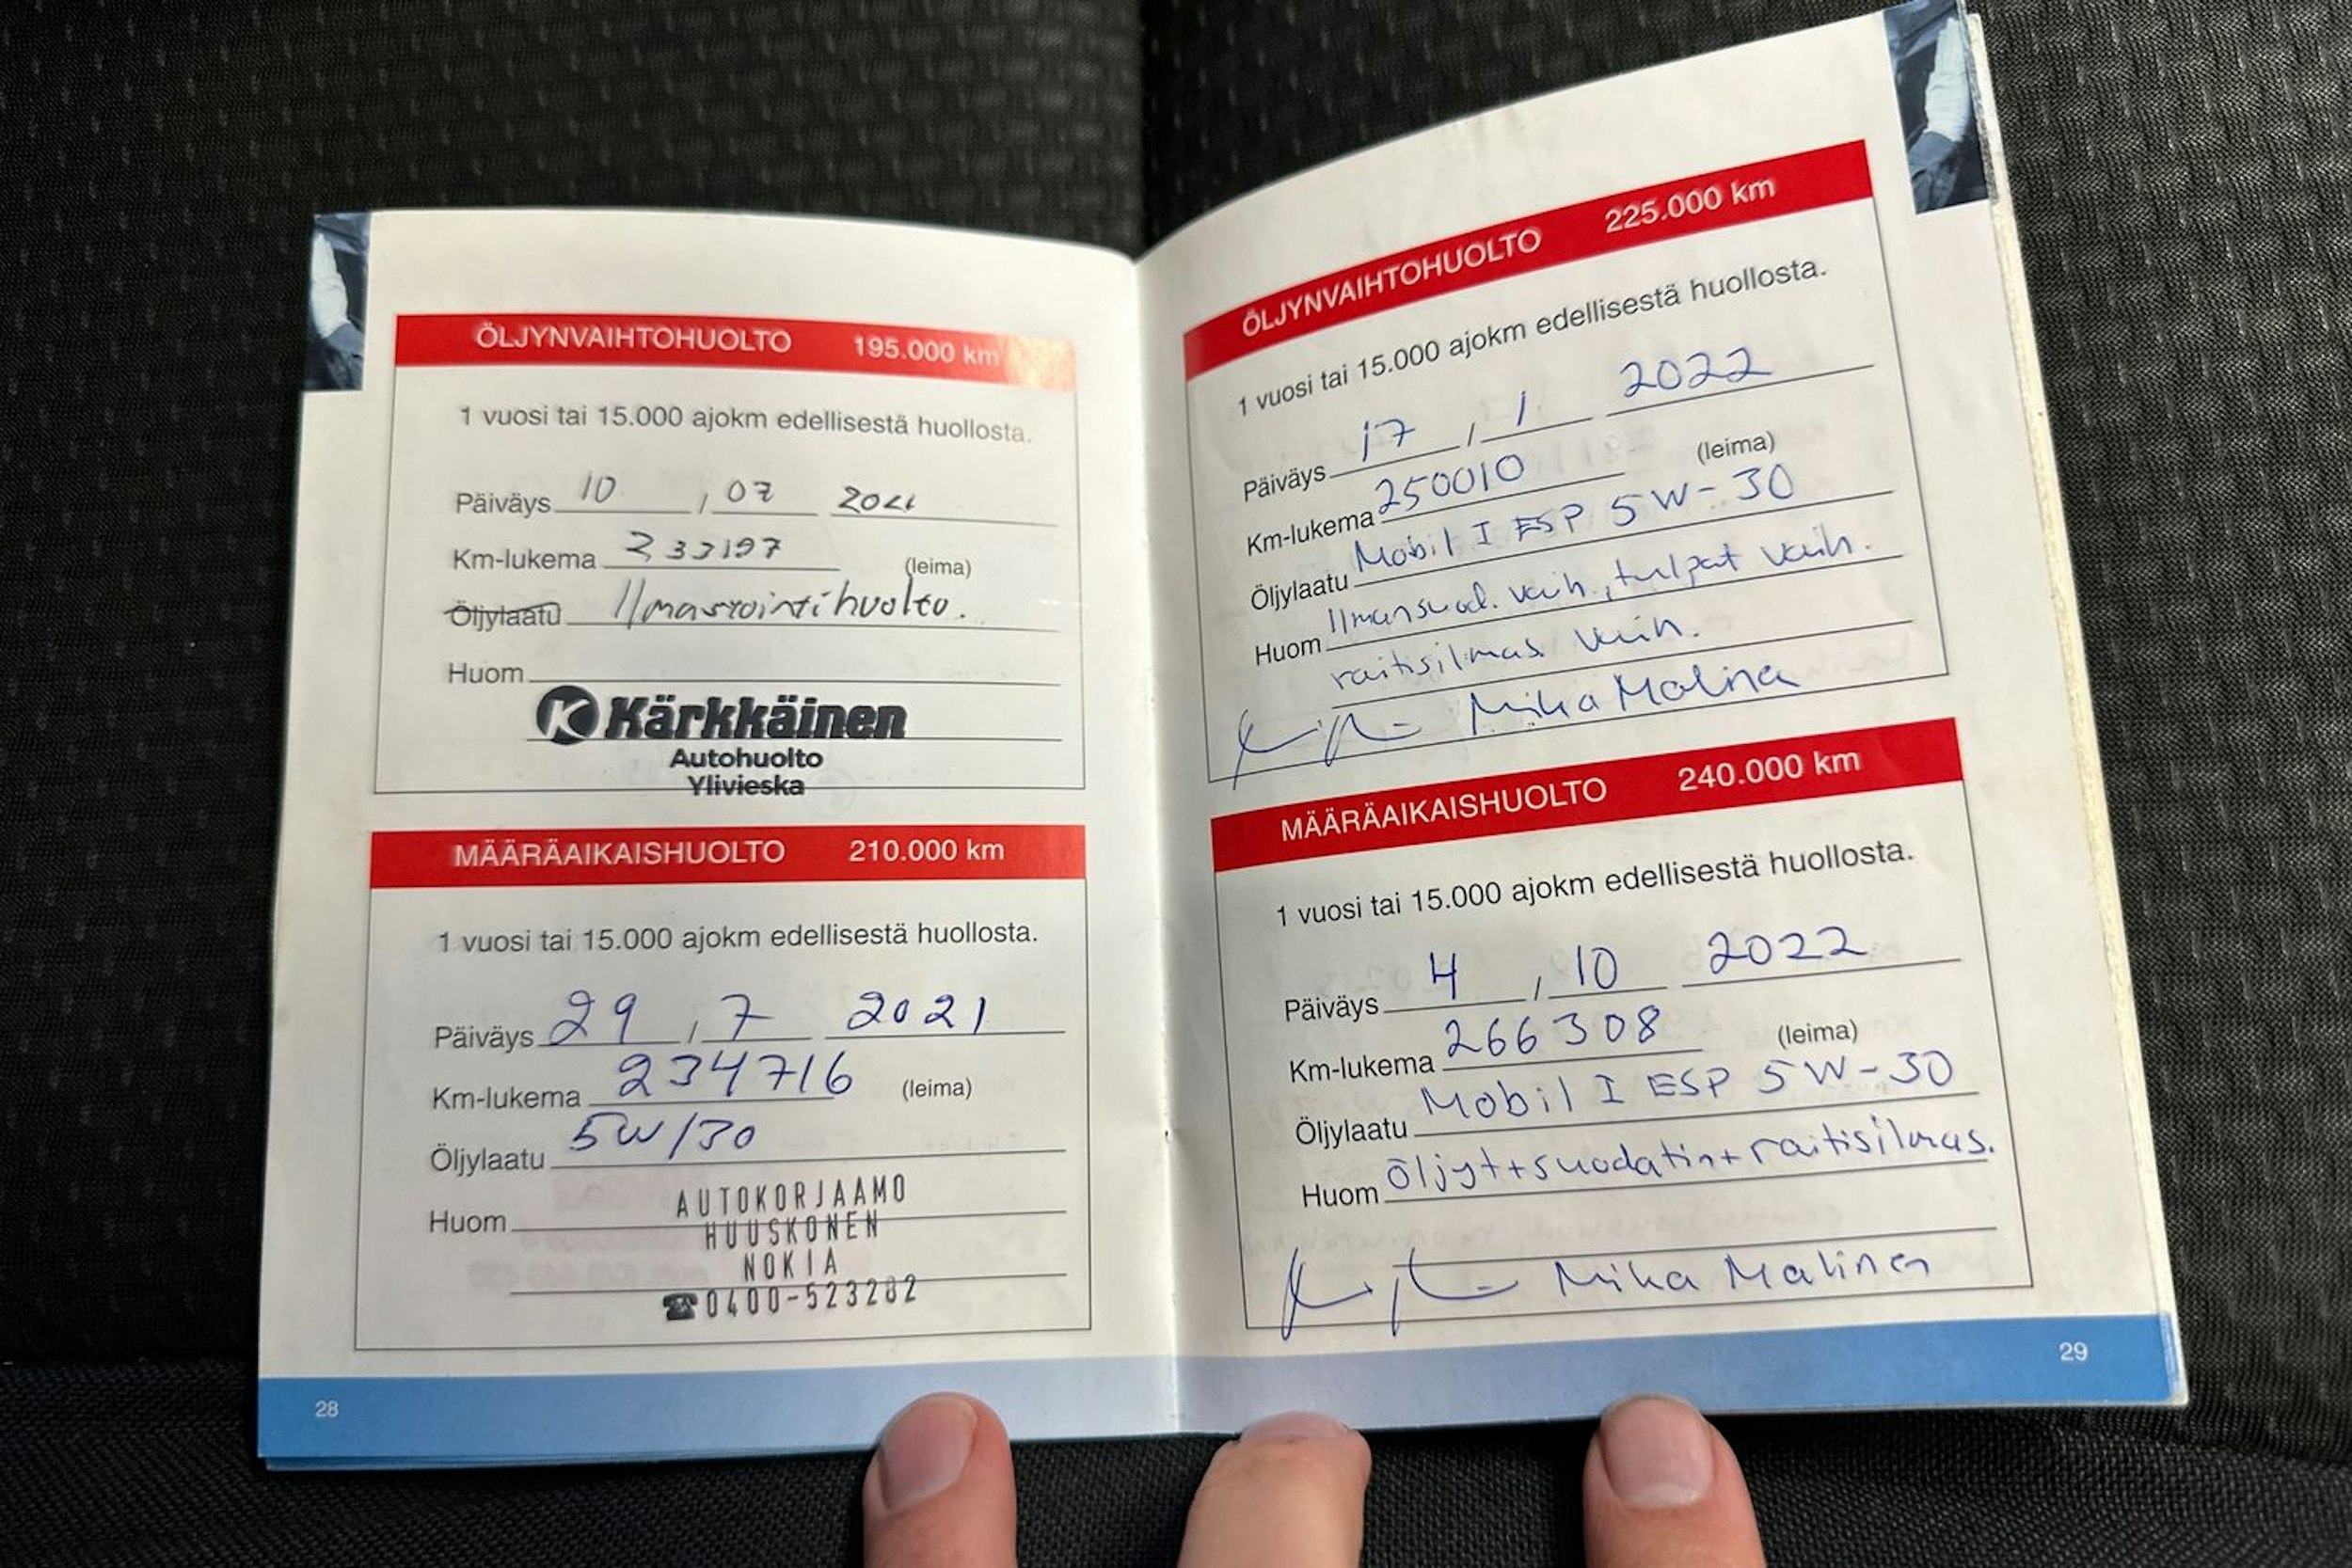 ÖLJYNVAIHTOHUOLTO 195.000 km
1 vuosi tai 15.000 ajokm edellisestä huollosta.
Päiväys 10 / 07 2021
Km-lukema 233197 (leima)
Öljylaatu Ilmastointihuolto.
Huom
Kärkkäinen
Autohuolto
Ylivieska
MÄÄRÄAIKAISHUOLTO 210.000 km
1 vuosi tai 15.000 ajokm edellisestä huollosta.
Päiväys 29 / 7 2021
Km-lukema 234716 (leima)
Öljylaatu 5W/30
Huom
AUTOKORJAAMO
HUUSKONEN
NOKIA
☎0400-523282
28
ÖLJYNVAIHTOHUOLTO 225.000 km
1 vuosi tai 15.000 ajokm edellisestä huollosta.
Päiväys 17 / 1 2022
Km-lukema 250010 (leima)
Öljylaatu Mobil I ESP 5W-30
Huom Ilmansuod. vaih., tulpat vaih.
raitisilmas. vaih.
Mika Malinen
MÄÄRÄAIKAISHUOLTO 240.000 km
1 vuosi tai 15.000 ajokm edellisestä huollosta.
Päiväys 4 / 10 2022
Km-lukema 266308 (leima)
Öljylaatu Mobil I ESP 5W-30
Huom Öljyt+suodatin+raitisilmas.
Mika Malinen
29